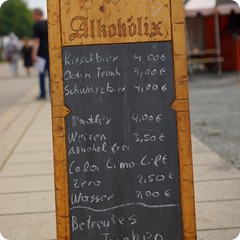 Alkoholix
Kirschbier 4,00€
Odin Trunk 4,00€
Schwarzbier 4,00€
Radler 4,00€
Weizen 3,50€
Alkohol frei
Cola Limo Lift
Zero 2,50€
Wasser 2,00€
Betreutes
Trinken